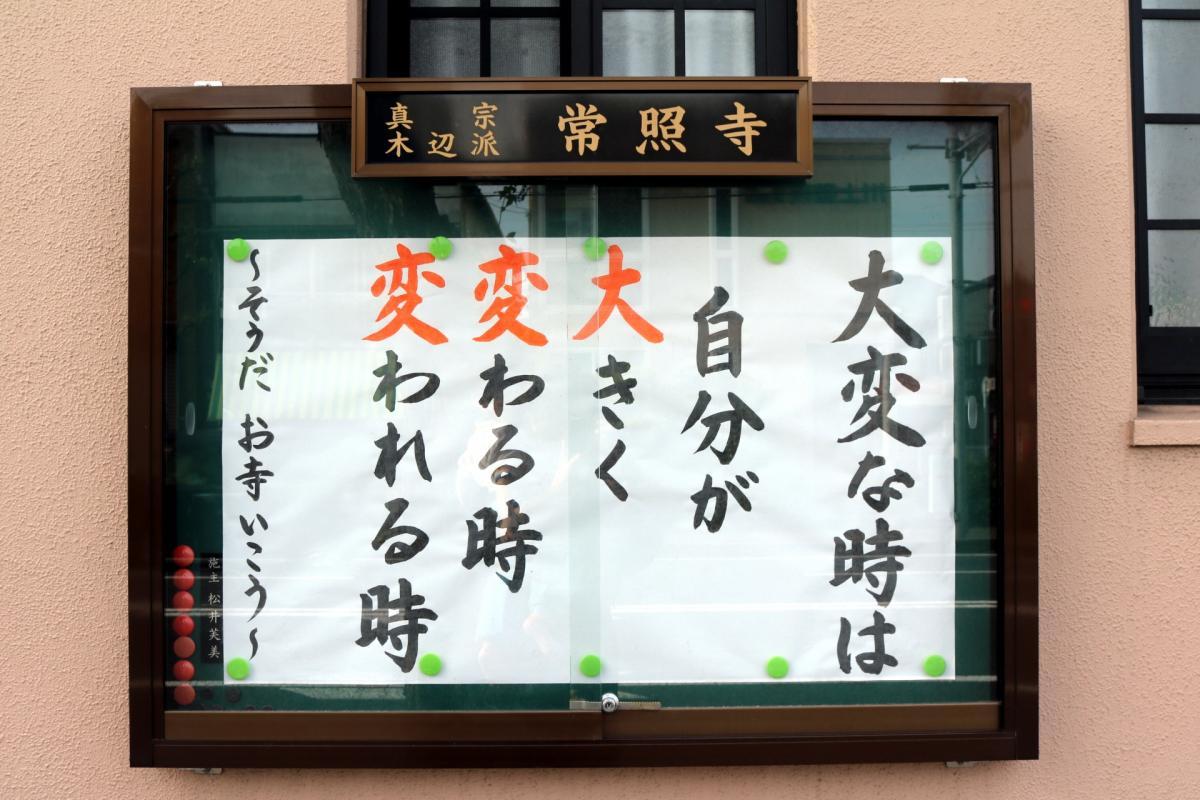 真宗
木辺派
常照寺
大変な時は
自分が
大きく
変わる時
変われる時
〜そうだ お寺 いこう〜
施主 松井芙美